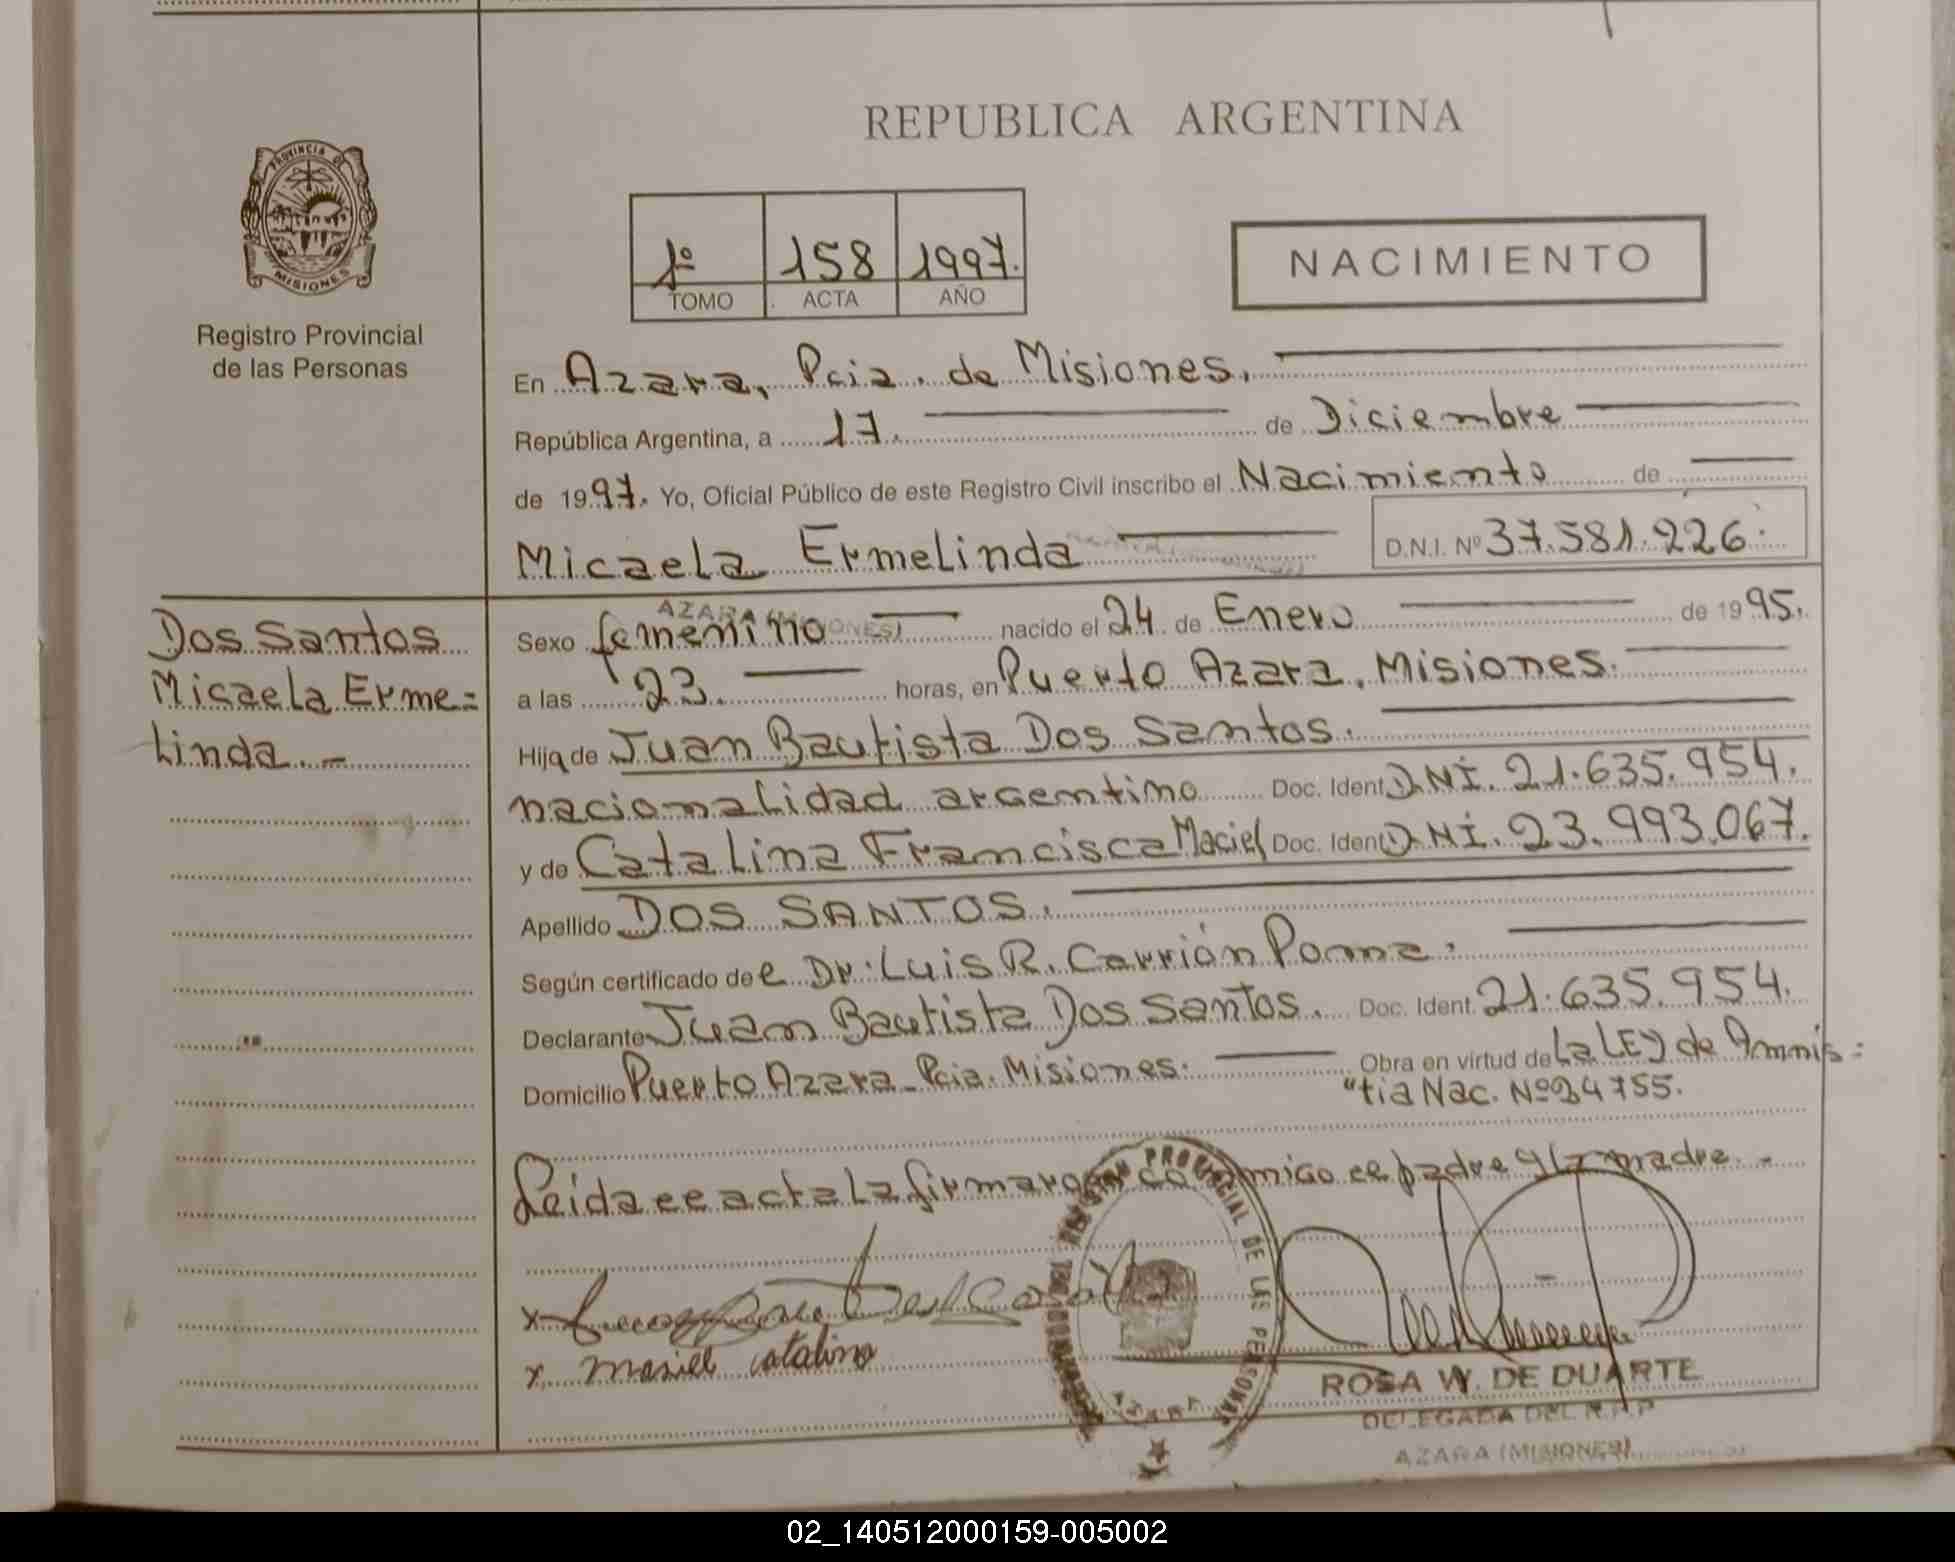 REPUBLICA ARGENTINA
PROVINCIA DE
MISIONES
Registro Provincial
de las Personas
1º 158 1997.
TOMO ACTA AÑO
NACIMIENTO
En Azara, Pcia. de Misiones.
República Argentina, a 17. de Diciembre
de 1997. Yo, Oficial Público de este Registro Civil inscribo el Nacimiento de
Micaela Ermelinda D.N.I. Nº 37.581.226.
AZARA (MISIONES)
Dos Santos
Micaela Erme=
linda.-
Sexo femenino nacido el 24 de Enero de 1995.
a las 23. horas, en Puerto Azara, Misiones.
Hija de Juan Bautista Dos Santos.
nacionalidad argentino Doc. Ident. D.N.I. 21.635.954.
y de Catalina Francisca Maciel Doc. Ident. D.N.I. 23.993.067.
Apellido DOS SANTOS.
Según certificado de el Dr. Luis R. Carrión Poma.
Declarante Juan Bautista Dos Santos. Doc. Ident. 21.635.954.
Domicilio Puerto Azara - Pcia. Misiones. Obra en virtud de la LEY de Amnis=
"tia Nac. Nº 24755.
Leida el acta la firmaron conmigo el padre y la madre.-
x
x maciel catalina
REGISTRO PROVINCIAL DE LAS PERSONAS
AZARA
ROSA W. DE DUARTE
DELEGADA DEL R.P.P
AZARA (MISIONES)
02_140512000159-005002